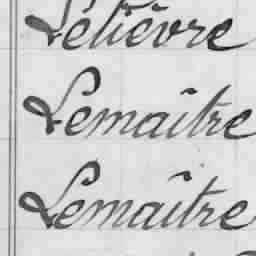 Lelièvre
Lemaître
Lemaître